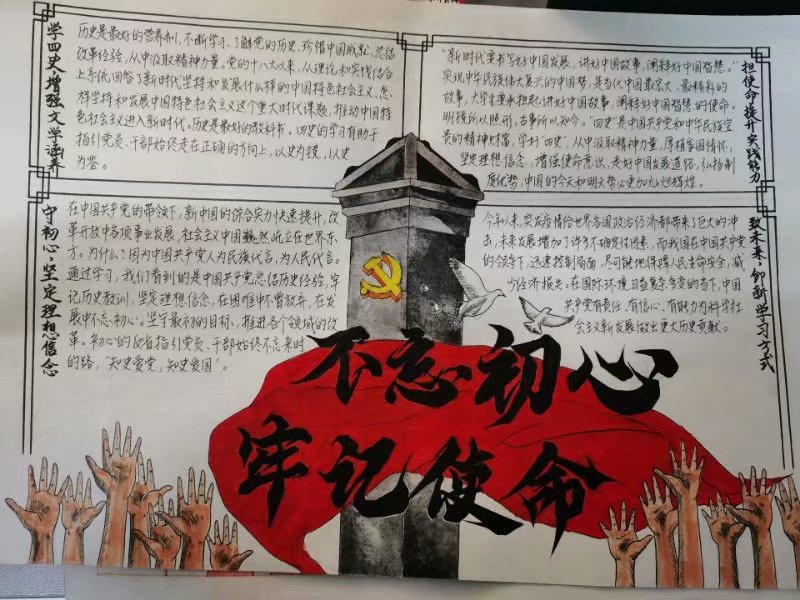 学四史，增强文学涵养
历史是最好的营养剂，不断学习、了解党的历史、珍惜中国成就、总结
改革经验，从中汲取精神力量。党的十八大以来，从理论和实践结合
上系统回答了新时代坚持和发展什么样的中国特色社会主义、怎
样坚持和发展中国特色社会主义这个重大时代课题，推动中国特
色社会主义进入新时代。历史是最好的教科书。四史的学习有助于
指引党员、干部始终走在正确的方向上，以史为镜，以史
为鉴。
担使命，提升实践能力
“新时代要书写好中国发展，讲好中国故事，阐释好中国智慧。”
实现中华民族伟大复兴的中国梦，是当代中国最宏大、最精彩的
故事，大学生要承担起讲好中国故事，阐释好中国智慧的使命。
明镜所以照形，古事所以知今。“四史”是中国共产党和中华民族宝
贵的精神财富，学好“四史”，从中汲取精神力量，厚植家国情怀，
坚定理想信念，增强使命意识，走好中国发展道路，弘扬制
度优势，中国的今天和明天势必更加灿烂辉煌。
守初心，坚定理想信念
在中国共产党的带领下，新中国的综合实力快速提升，改
革开放中各项事业发展，社会主义中国巍然屹立在世界东
方。为什么？因为中国共产党人为民族代言，为人民代言。
通过学习，我们看到的是中国共产党总结历史经验，牢
记历史教训，坚定理想信念，在困难中不曾放弃，在发
展中不忘初心。坚守最初的目标，推进各个领域的改
革。初心的仅自指引党员、干部始终不忘来时
的路，“知史爱党，知史爱国”。
致未来，创新学习方式
今年以来，突发疫情给世界各国政治经济都带来了巨大的冲
击，未来发展增加了许多不确定性因素，而我国在中国共产党
的领导下，迅速控制局面，尽可能地保障人民生命安全，减
少经济损失。在国际环境日益复杂多变的当下，中国
共产党有责任、有信心、有能力为科学社
会主义新发展做出更大历史贡献。
不忘初心
牢记使命